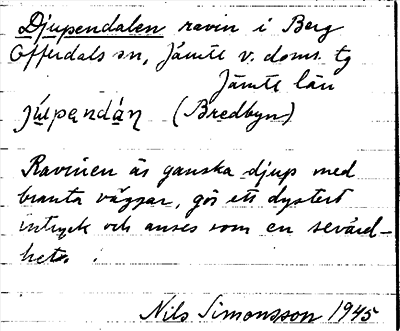 Djupendalen ravin i Berg
Offerdals sn, Jämtl v. doms. tg
Jämtl län
júpandán (Bredbyn)
Ravinen är ganska djup med
branta väggar, gör ett dystert
intryck och anses som en sevärd-
het.
Nils Simonsson 1945